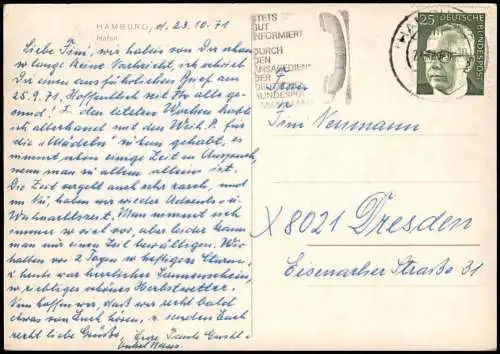 HAMBURG, d. 23.10.71
Hafen
Liebe Tini, wir haben von Dir schon
so lange keine Nachricht, ich schrieb
Dir einen ausführlichen Brief am
25.9.71, Hoffentlich ist Ihr alle ge-
sund! I. den letzten Wochen hatte
ich allerhand mit den Weih. P. für
die "Mädeln" zu tun gehabt, es
nimmt schon einige Zeit in Anspruch,
wenn man zu allem allein ist.
Die Zeit vergeht auch sehr rasch, und
im Nu, haben wir wieder Advents- u.
Weihnachtszeit. Man nimmt sich
immer so viel vor, aber leider kann
man nur einen Teil bewältigen. Wir
hatten vor 2 Tagen so heftigen Sturm,
u. heute war herrlicher Sonnenschein,
so richtiges schönes Herbstwetter.
Nun hoffen wir, daß wir recht bald
etwas von Euch hören, u. senden Euch
recht liebe Grüße. Eure Tante Gustl u.
Onkel Hans
STETS
GUT
INFORMIERT
DURCH
DEN
ANSAGEDIENST
DER
DEUTSCHEN
BUNDESPOST
25 DEUTSCHE
BUNDESPOST
Frau
Tini Neumann
X 8021 Dresden
Eisenacher Straße 31